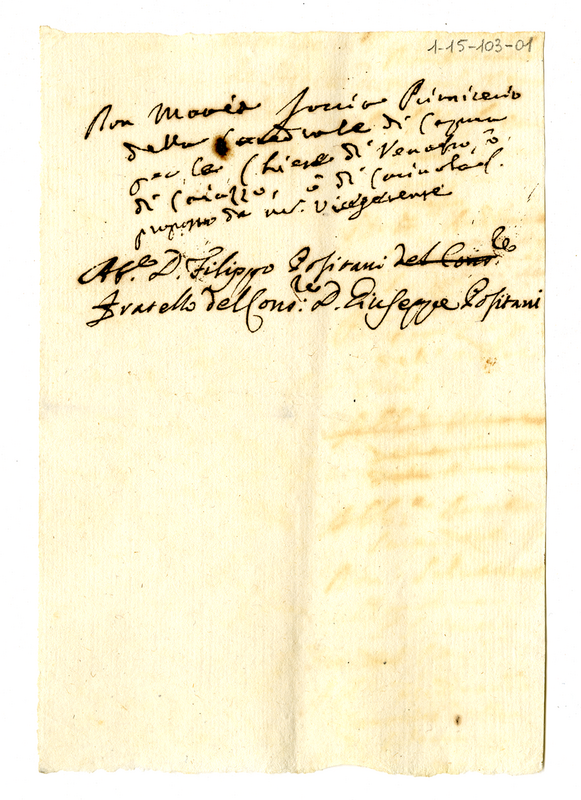 1-15-103-01
Don Movie Primicerio
della Catedrale di Capua
per le Chiese di Venafro, ò
di Caiazzo, ò di Carinola
proposto da m.r Vicegerente
Ab.e D. Filippo Positani del Cons.re
Fratello del Cons.re D. Giuseppe Positani